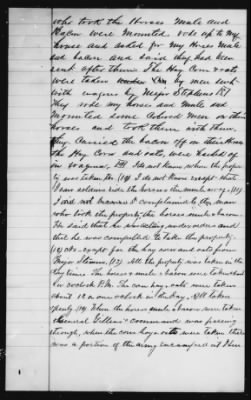 who took the Horses Mule and
Bacon were Mounted rode up to my
house and asked for my Horses Mule
and bacon and said they had been
sent after them. The Hay Corn & oats
were taken by men sent
with wagons by Major Stephens
They rode my horses and Mule and
Mounted some Colored Men on their
horses and took them with them,
They Carried the bacon off on their Horses
The Hay Corn and oats, were hauled off
in Wagons, I do not know when the property
was taken for I do not know except that
I saw soldiers ride the horses & the mule away
I did not to the man
who took the property the horses mule & bacon.
He said that he was acting under orders and
that he was compelled to take the property.
for the hay corn and oats from
Major Stevens. All the property was taken in the
day time. The horses & mule & bacon were taken about
o'clock P.M. The corn hay & oats were taken
about 12 or one o'clock in the day, All taken
openly When the horses mule & bacon were taken
General command was passing
through, when the corn hay & oats were taken there
was a portion of the army encamped at